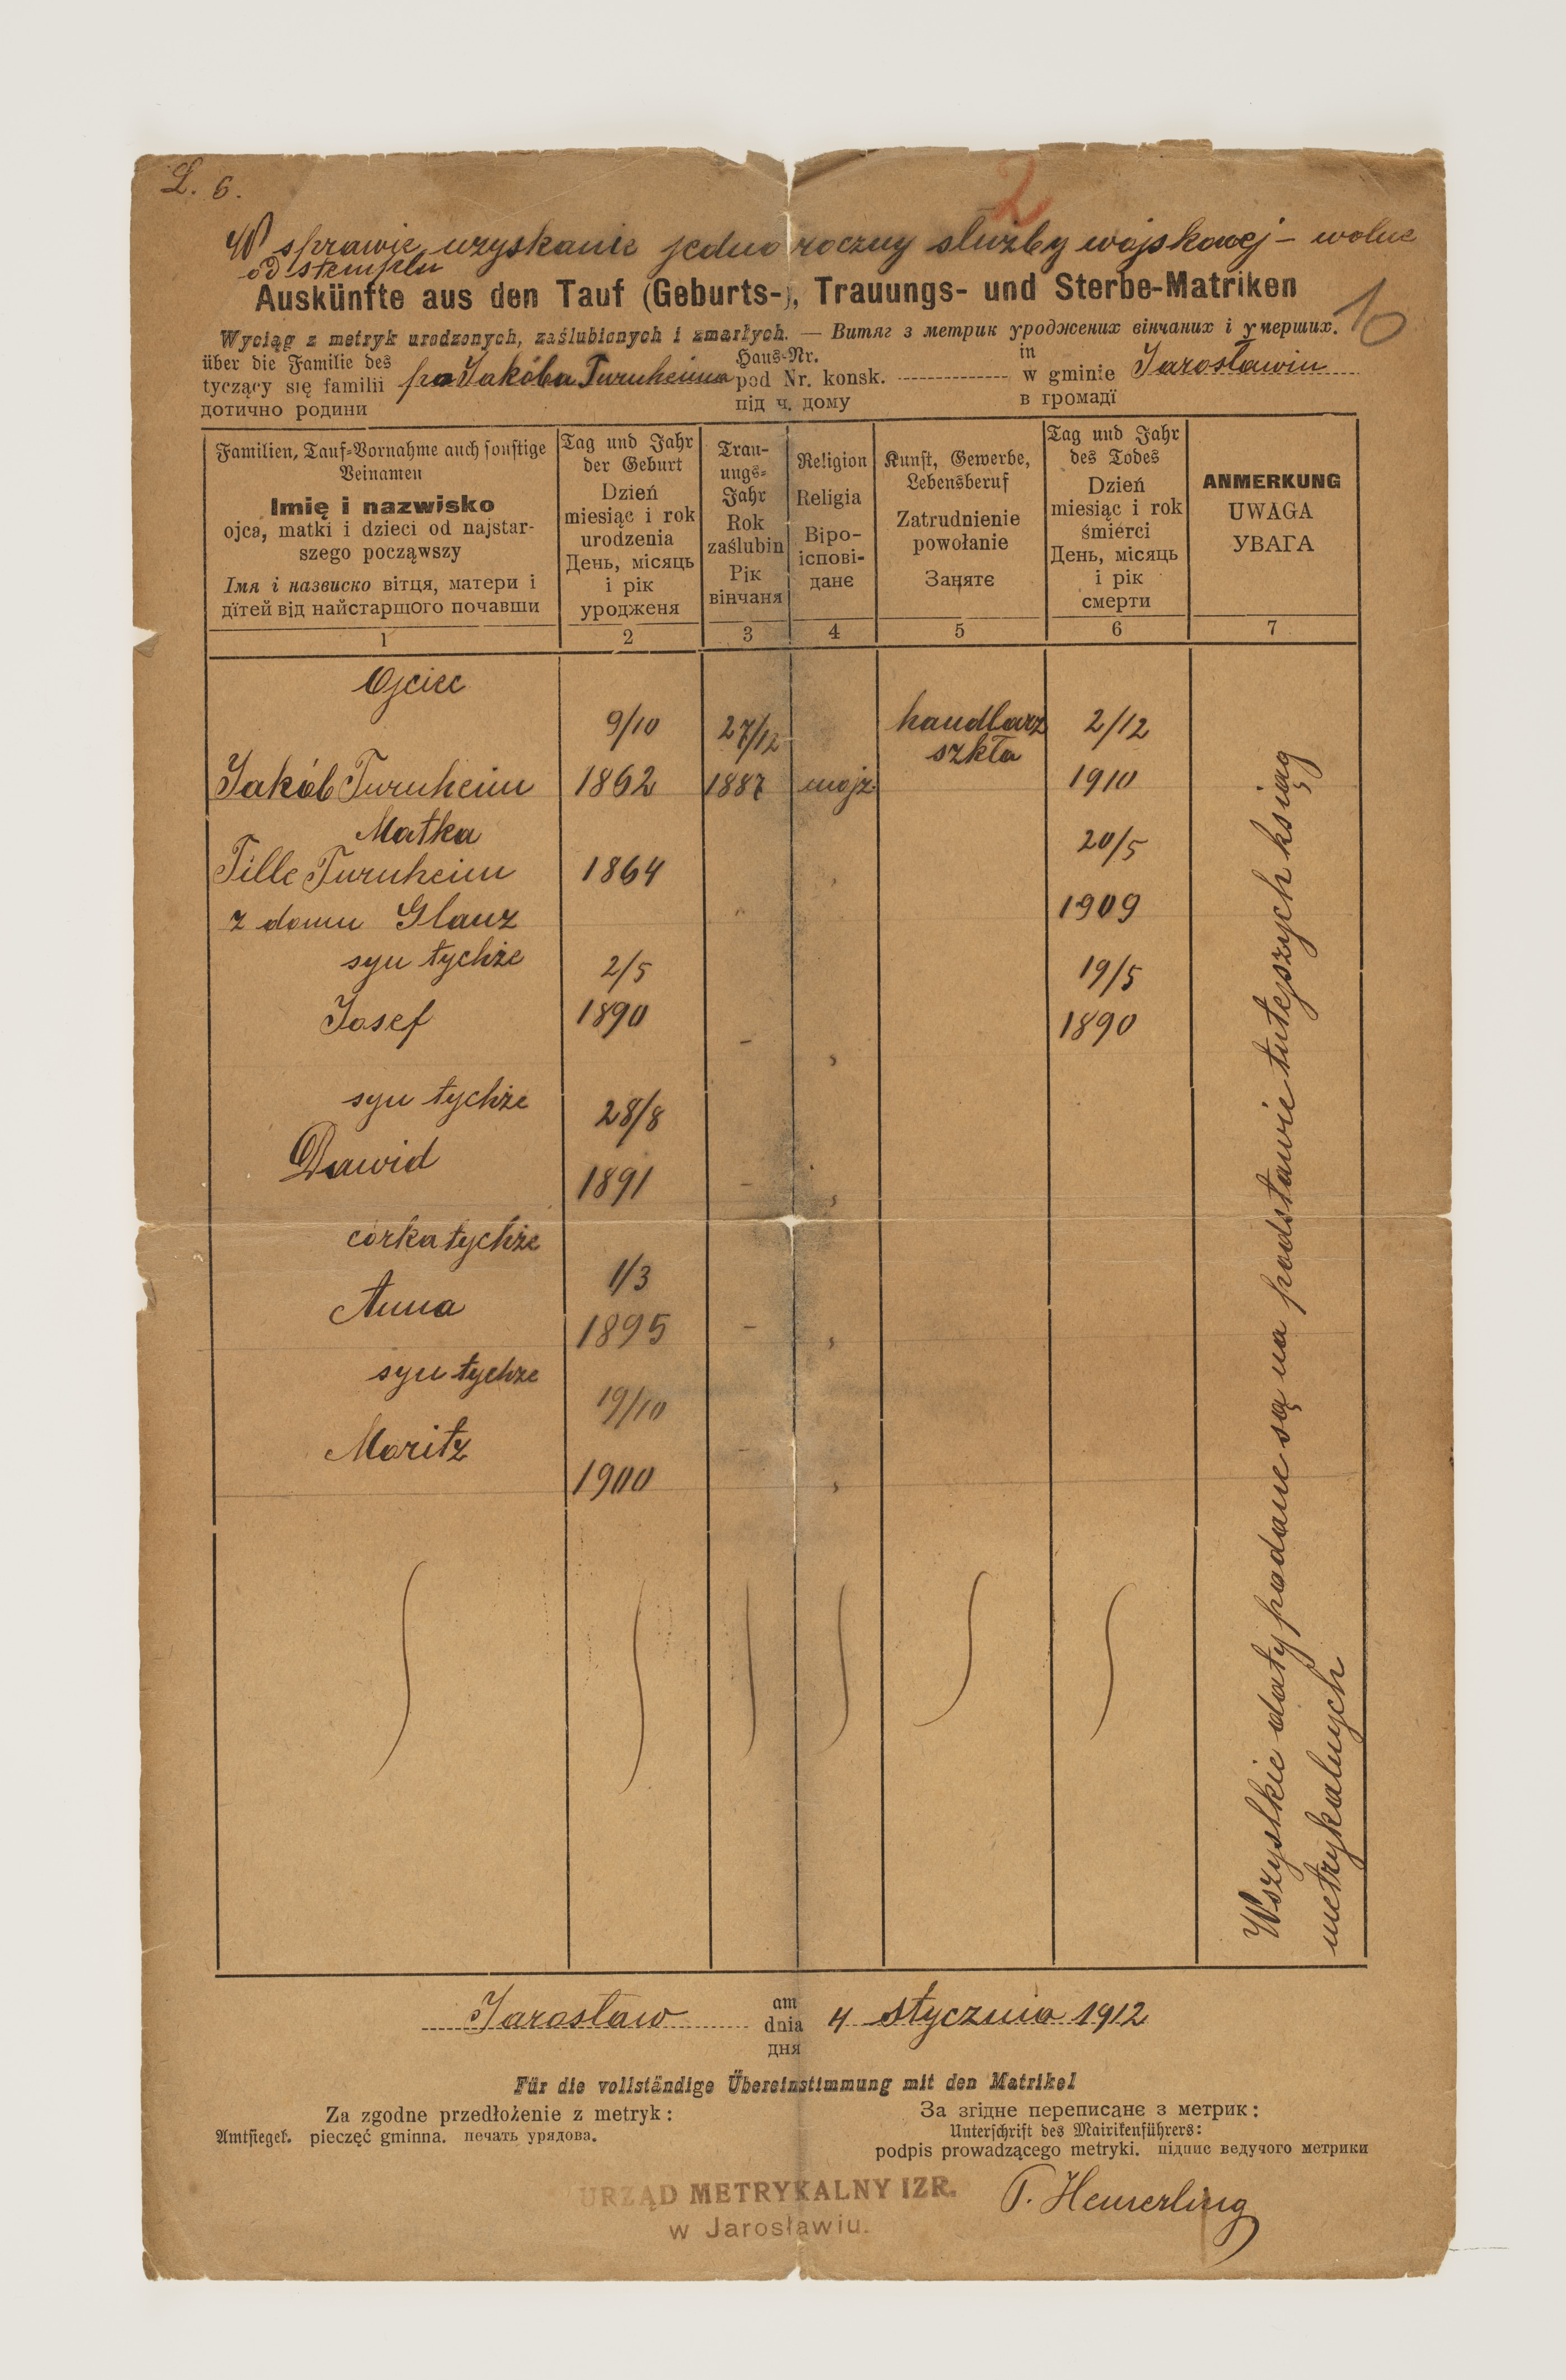 L. 6.
2
W sprawie uzyskanie jedno roczny służby wojskowej – wolne
od stempla
Auskünfte aus den Tauf (Geburts-), Trauungs- und Sterbe-Matriken
10
Wyciąg z metryk urodzonych, zaślubionych i zmarłych. — Витяг з метрик уроджених вінчаних і умерших.
über die Familie des Haus-Nr. in
tyczący się familii po Jakóba Turnheima pod Nr. konsk. w gminie Jarosławiu
дотично родини під ч. дому в громадї
Familien, Tauf-Vornahme auch sonstige
Beinamen
Imię i nazwisko
ojca, matki i dzieci od najstar-
szego począwszy
Імя і назвиско вітця, матери і
дїтей від найстаршого почавши
1
Tag und Jahr
der Geburt
Dzień
miesiąc i rok
urodzenia
День, місяць
і рік
уродженя
2
Trau-
ungs-
Jahr
Rok
zaślubin
Рік
вінчаня
3
Religion
Religia
Віро-
ісповi-
данє
4
Kunst, Gewerbe,
Lebensberuf
Zatrudnienie
powołanie
Занятє
5
Tag und Jahr
des Todes
Dzień
miesiąc i rok
śmierci
День, місяць
і рік
смерти
6
ANMERKUNG
UWAGA
УВАГА
7
Ojciec
9/10 27/12 handlarz 2/12
szkła
Jakób Turnheim 1862 1887 mojż. 1910
Matka
20/5
Tille Turnheim 1864
z domu Glanz 1909
syn tychże 2/5 19/5
Josef 1890 1890
syn tychże 28/8
Dawid 1891
córka tychże
1/3
Anna 1895
syn tychże
19/10
Moritz
1900
Wszystkie daty podane są na podstawie tutejszych ksiąg
metrykalnych
am
Jarosław dnia 4 stycznia 1912
дня
Für die vollständige Übereinstimmung mit den Matrikel
Za zgodne przedłożenie z metryk: За згідне переписанє з метрик:
Amtsiegel. pieczęć gminna. печать урядова. Unterschrift des Mairikenführers:
podpis prowadzącego metryki. підпис ведучого метрики
URZĄD METRYKALNY IZR.
w Jarosławiu.
T. Hemerling